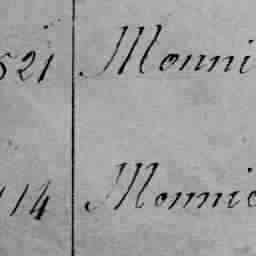 521 Monni
114 Monnie